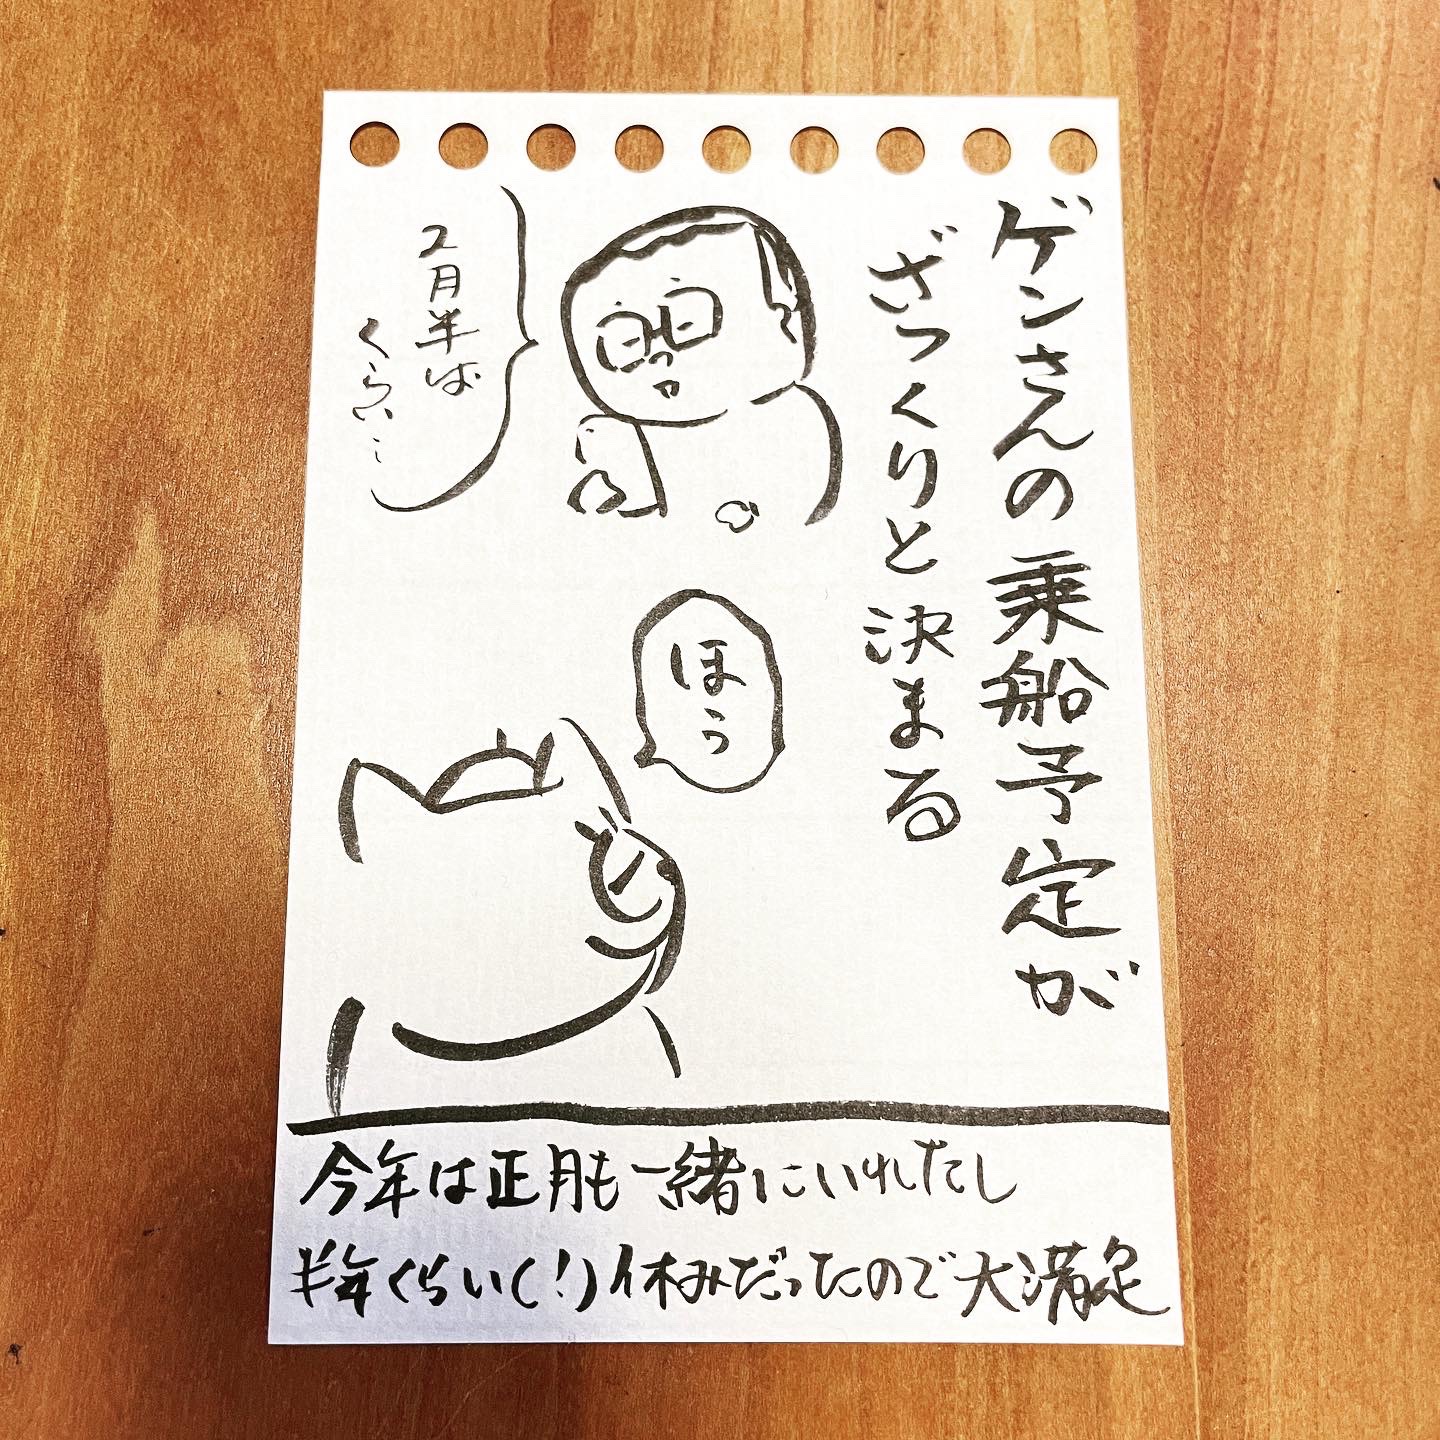 ゲンさんの乗船予定が
ざっくりと決まる
2月半ば
くらい…
ほう
今年は正月も一緒にいれたし
半年くらい(!)休みだったので大満足